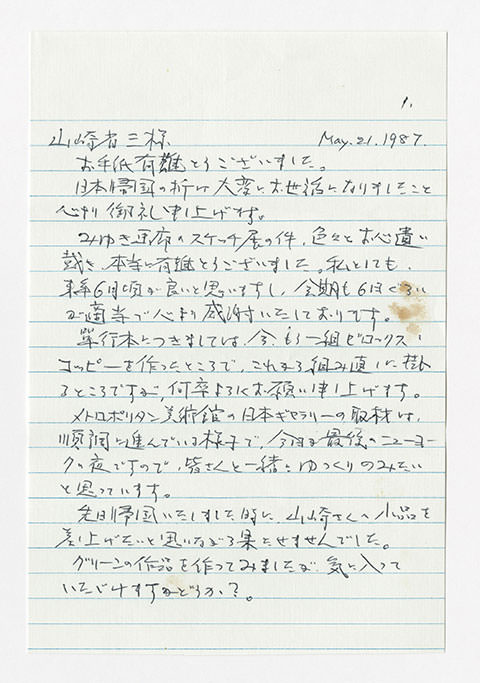 1.
山崎省三様 May. 21. 1987.
お手紙有難とうございました。
日本帰国の折は大変にお世話になりましたこと
心より御礼申し上げます。
みゆき画廊のスケッチ展の件、色々とお心遣い
戴き、本当に有難とうございました。私としても、
来年6月頃が良いと思いますし、会期も6日ぐらい
が適当で心より感謝いたしております。
単行本につきましては、今、もう一組ゼロックス・
コッピーを作ったところで、これから組み直しに掛
るところですが、何卒よろしくお願い申し上げます。
メトロポリタン美術館の日本ギャラリーの取材は、
順調に進んでいる様子で、今日が最後のニューヨー
クの夜ですので、皆さんと一緒にゆっくりのみたい
と思っています。
先日帰国いたしました時に、山崎さんへ小品を
差上げたいと思いながら果たせませんでした。
グリーンの作品を作ってみましたが、気に入って
いただけますかどうか?。